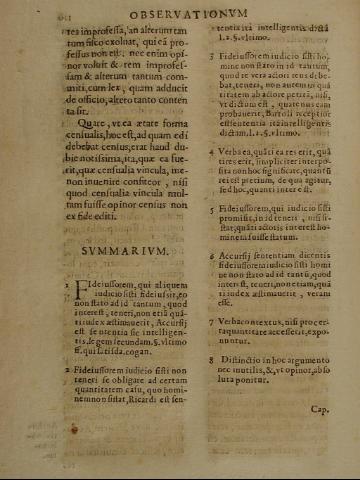 OBSERVATIONVM
rea improfessa, an alterum tan
tum fisco exoluat, qui eã pro-
fessus non est. nec enim opi-
nor voluit & rem improfes-
sam & alterum tantum com-
miti, cum lex, quam adducit
de officio, altero tanto conten
ta sit.
Quare, vt ea ætate forma
censualis, hoc est, ad quam edi
debebat census, erat haud du-
bie notissima, ita, quæ ea fue-
rit, quæ censualia vincula, me-
non inuenire confiteor, nisi
quod censualia vincula nul-
lum fuisse opinor census non
ex fide editi.
SVMMARIVM.
1 Fideiussorem, qui aliquem
iudicio sisti fideiussit, eo
non stato ad id tantum, quod
interest, teneri, non etiã quã-
ti iudex æstimauerit, Accursij
est sententia ita intelligen-
tis, legem secundam. §. vltimo
ff. qui satisda. cogan.
2 Fideiussorem iudicio sisti non
teneri se obligare ad certam
quantitatem casu, quo homi-
nem non sistat, Ricardi est sen-
tentia ita intelligentis dictã
l. 2. §. vltimo.
3 Fideiussorem iudicio sisti ho-
mine non stato in id tantum,
quod re vera actori reus debe-
bat, teneri, non autem in quã
titatem ab actore petitã, nisi,
vt dictum est, quatenus eam
probauerit, Bartoli receptior
est sententia ita intelligentis
dictam. l. 2. §. vltimo.
4 Verba ea, quãti ea res erit, quã
ti res erit, simpliciter interpo-
sita non hoc significare, quanti
est rei pretium, de qua agitur,
sed hoc, quanti interest.
5 Fideiussorem, qui iudicio sisti
promisit, in id teneri, nisi si-
stat, quãti actoris interest ho-
minem fuisse statum.
6 Accursij sententiam dicentis
fideiussorem iudicio sisti homi
ne non stato ad id tantũ, quod
interest, teneri, non etiam, quã
ti iudex æstimauerit, veram
esse.
7 Verba contextus, nisi pro cer-
ta quantitate accesserit, expo-
nuntur.
8 Distinctio in hoc argumento
nec inutilis, &, vt opinor, abso
luta ponitur.
Cap.